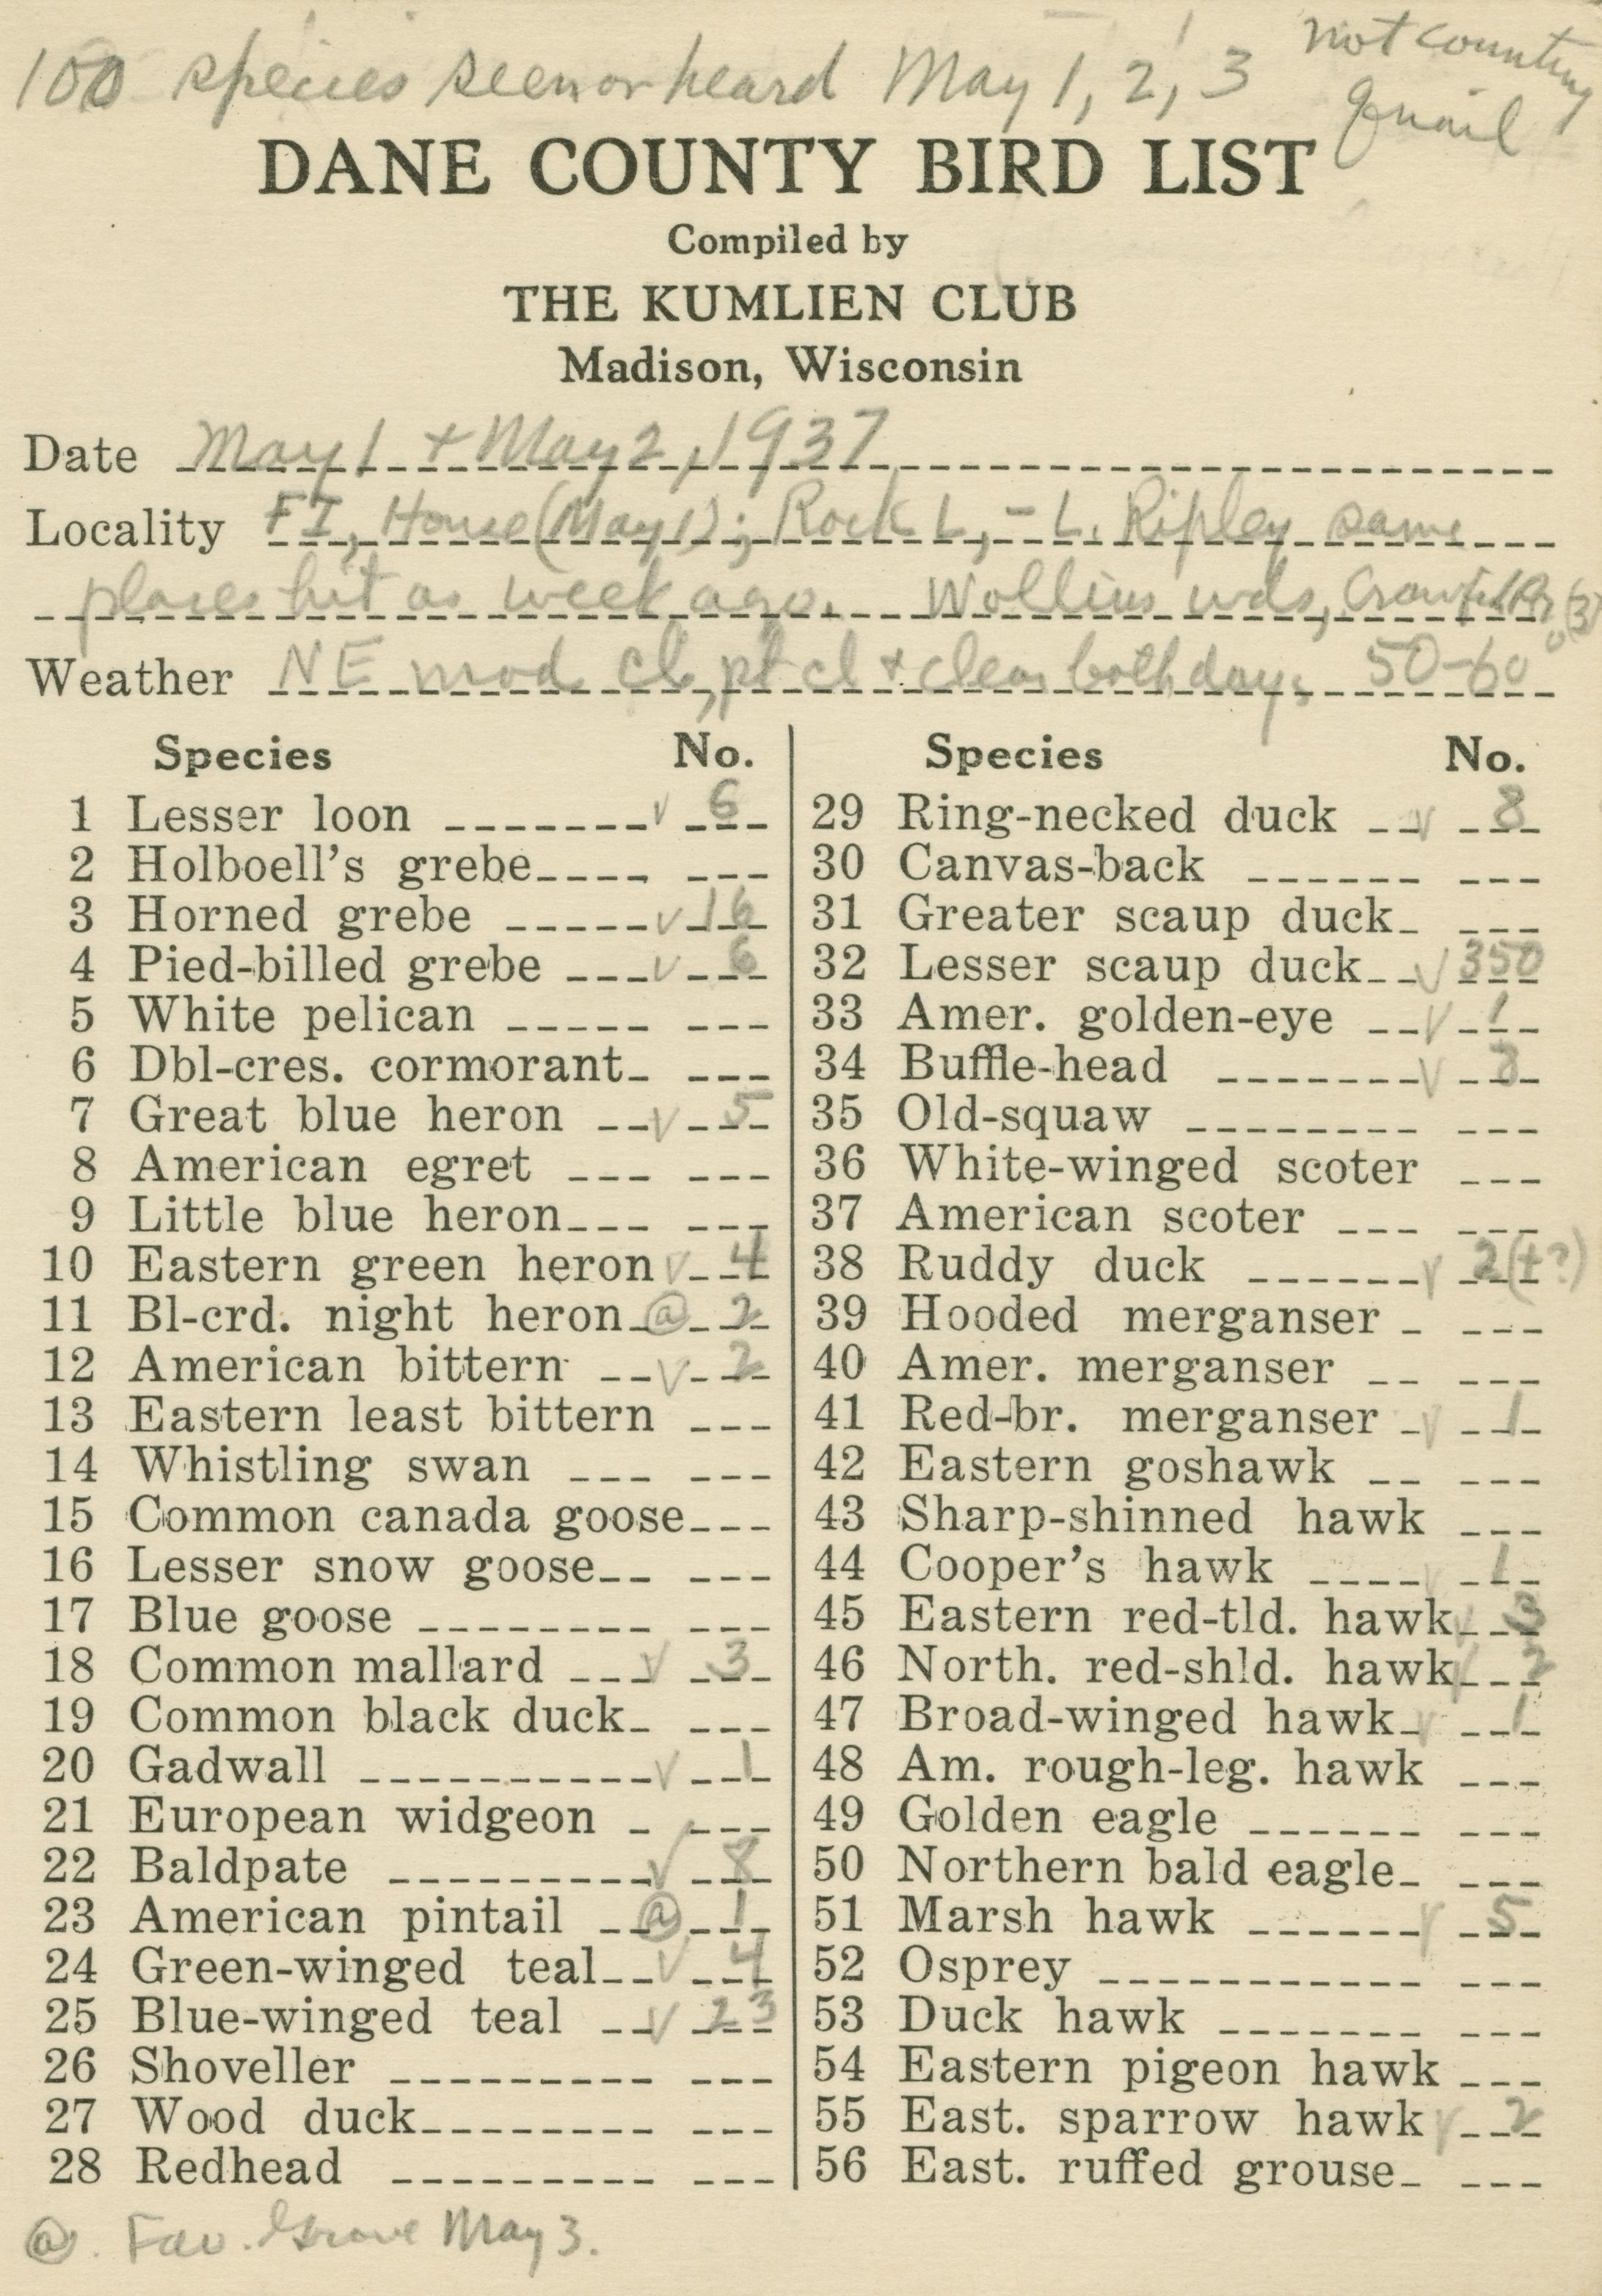 100 species seen or heard May 1, 2, 3 not counting
quail
DANE COUNTY BIRD LIST
Compiled by
THE KUMLIEN CLUB
Madison, Wisconsin
Date May 1 + May 2, 1937
Locality FI, House (May 1); Rock L, - L. Ripley same
places hit as week ago. Wollins wds, (3)
Weather NE mod cl, pt cl + clear both days 50-60°
Species No.
1 Lesser loon ✓ 6
2 Holboell's grebe
3 Horned grebe ✓ 16
4 Pied-billed grebe ✓ 6
5 White pelican
6 Dbl-cres. cormorant
7 Great blue heron ✓ 5
8 American egret
9 Little blue heron
10 Eastern green heron ✓ 4
11 Bl-crd. night heron @ 2
12 American bittern ✓ 2
13 Eastern least bittern
14 Whistling swan
15 Common canada goose
16 Lesser snow goose
17 Blue goose
18 Common mallard ✓ 3
19 Common black duck
20 Gadwall ✓ 1
21 European widgeon
22 Baldpate ✓ 8
23 American pintail @ 1
24 Green-winged teal ✓ 4
25 Blue-winged teal ✓ 23
26 Shoveller
27 Wood duck
28 Redhead
Species No.
29 Ring-necked duck ✓ 8
30 Canvas-back
31 Greater scaup duck
32 Lesser scaup duck ✓ 350
33 Amer. golden-eye ✓ 1
34 Buffle-head ✓
35 Old-squaw
36 White-winged scoter
37 American scoter
38 Ruddy duck ✓ 2(+?)
39 Hooded merganser
40 Amer. merganser
41 Red-br. merganser ✓ 1
42 Eastern goshawk
43 Sharp-shinned hawk
44 Cooper's hawk ✓ 1
45 Eastern red-tld. hawk ✓ 3
46 North. red-shld. hawk ✓ 2
47 Broad-winged hawk ✓ 1
48 Am. rough-leg. hawk
49 Golden eagle
50 Northern bald eagle
51 Marsh hawk ✓ 5
52 Osprey
53 Duck hawk
54 Eastern pigeon hawk
55 East. sparrow hawk ✓ 2
56 East. ruffed grouse
@. Fav. Grove May 3.